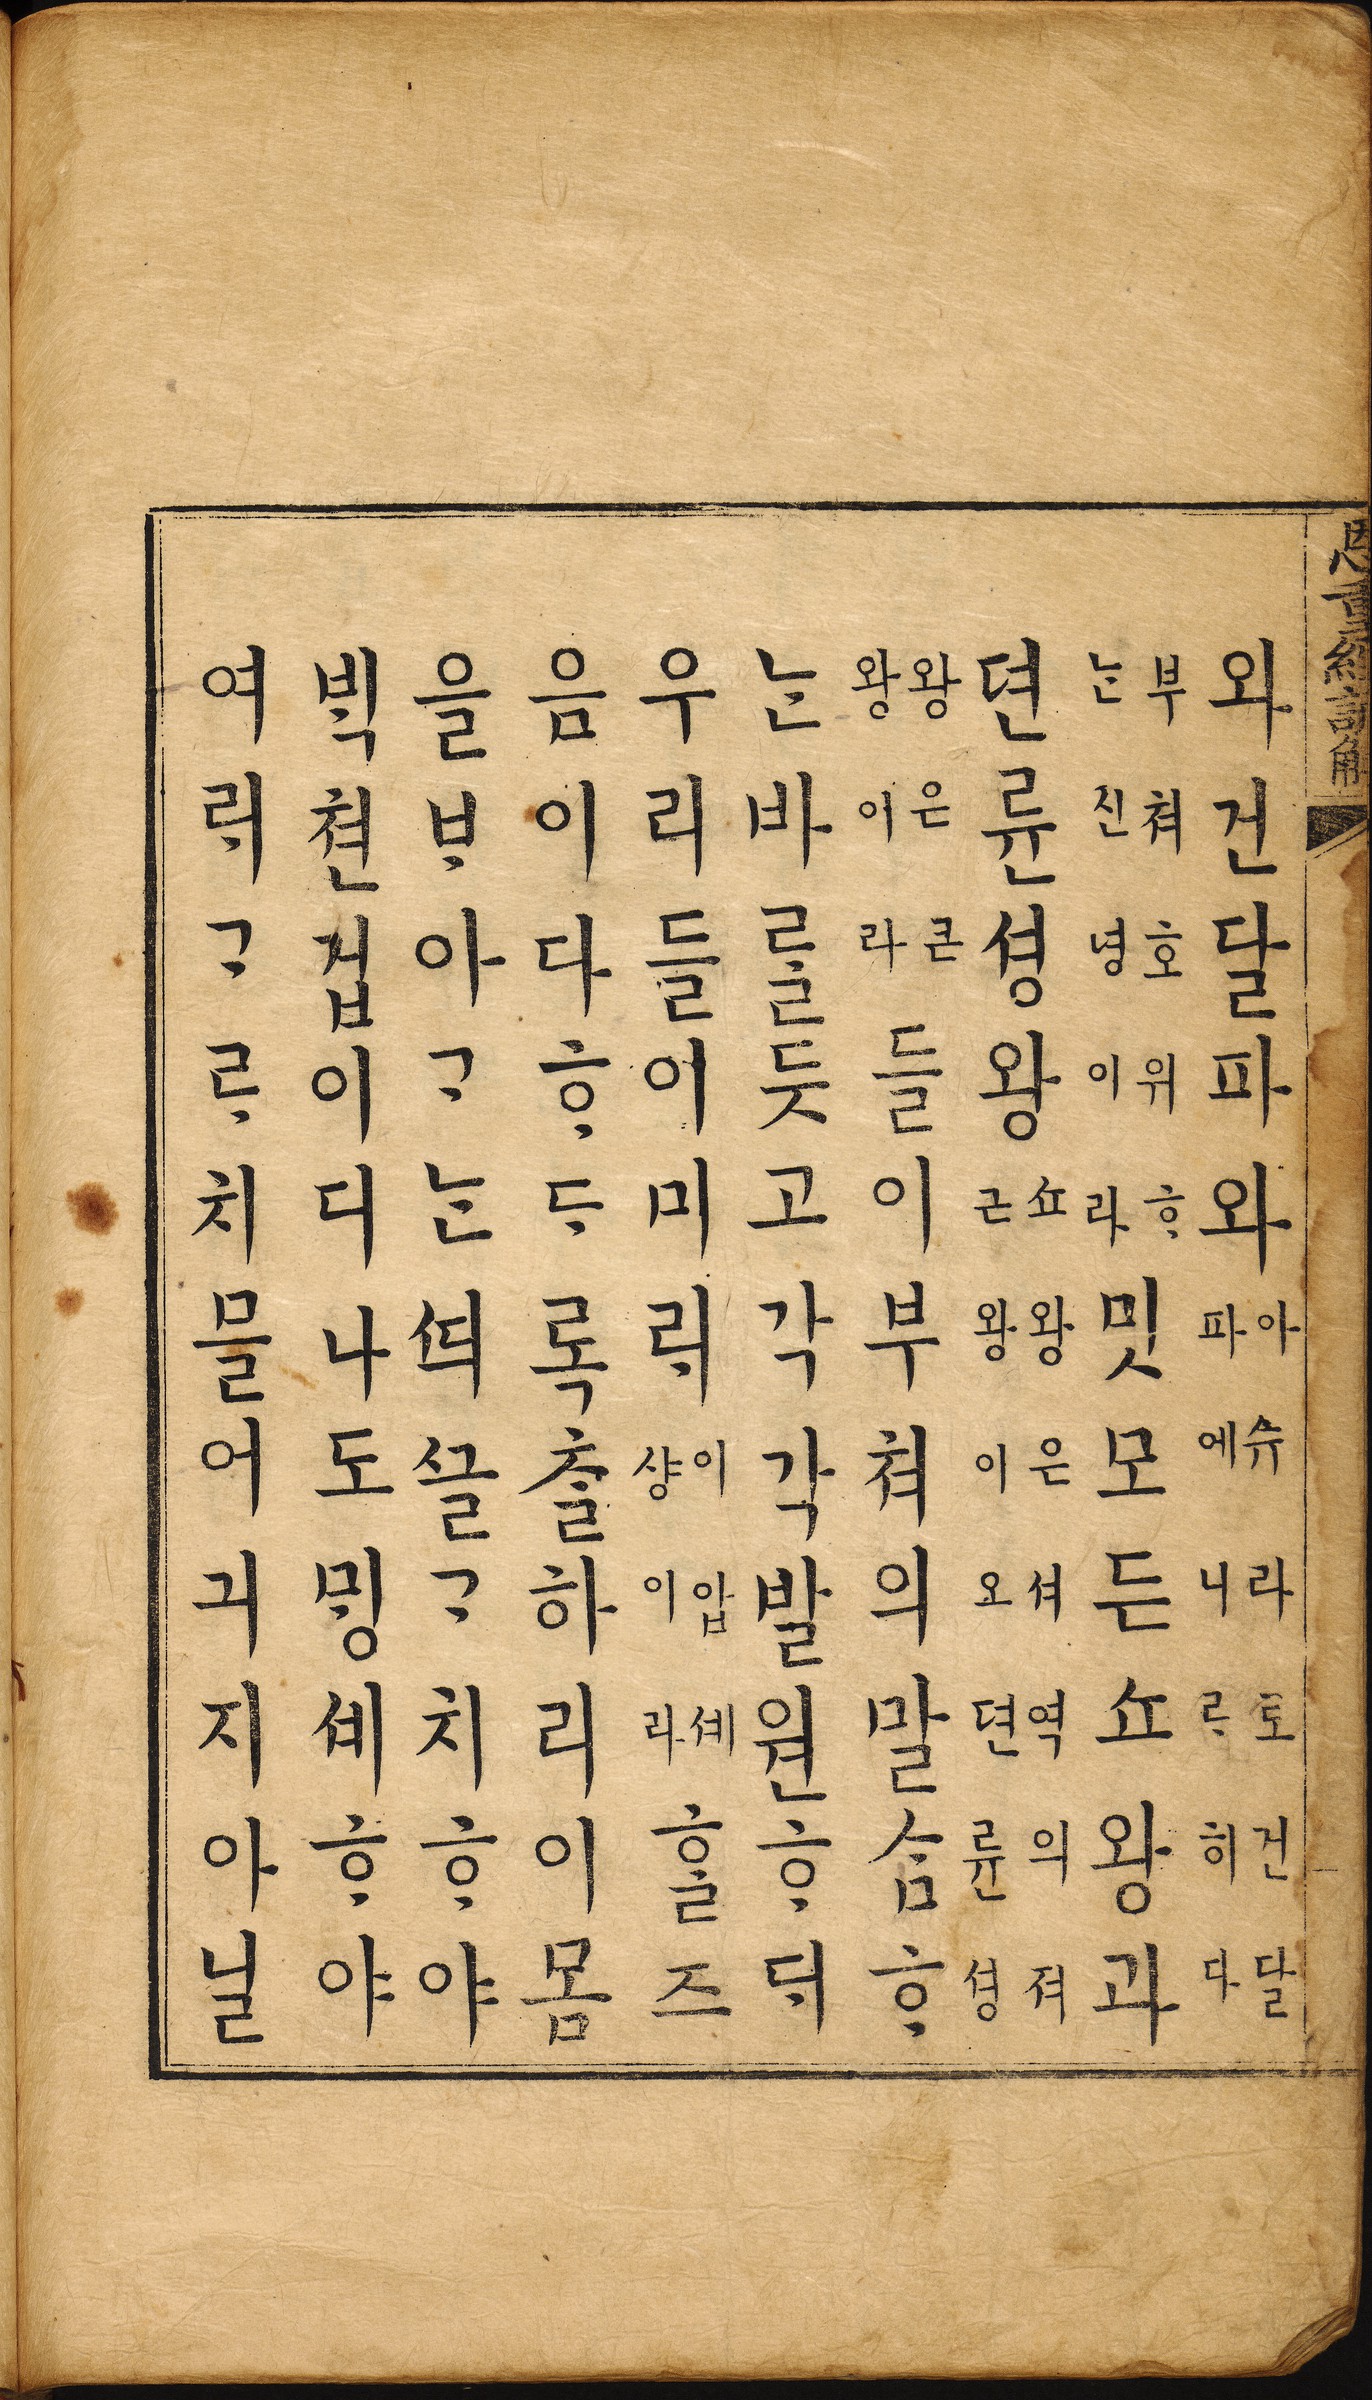 와건달파와
아슈라토건달
파에니ᄅᆞ히다
부쳐호위ᄒᆞ
ᄂᆞᆫ신녕이라
밋모든쇼왕과
뎐륜셩왕
쇼왕은셔역의져
근왕이오뎐륜셩
왕은큰
왕이라
들이부쳐의말ᄉᆞᆷᄒᆞ
ᄂᆞᆫ바ᄅᆞᆯ듯고각각발원ᄒᆞᄃᆡ
우리들어미ᄅᆡ
이압셰
샹이라
ᄒᆞᆯ즈
음이다ᄒᆞᄃᆞ록ᄎᆞᆯ하리이몸
을ᄇᆞ아ᄀᆞᄂᆞᆫᄯᅴᄭᅳᆯᄀᆞ치ᄒᆞ야
ᄇᆡᆨ쳔겁이디나도ᄆᆡᆼ셰ᄒᆞ야
여ᄅᆡᄀᆞᄅᆞ치믈어긔지아닐